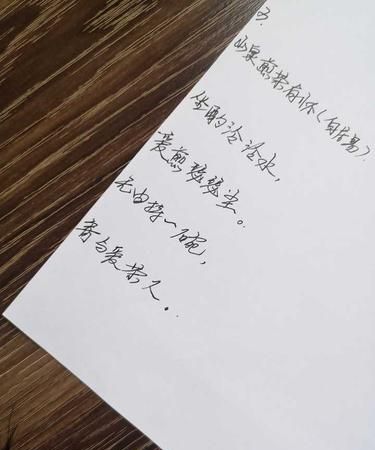 3.
山泉煎茶有怀(白居易)
坐酌泠泠水,
爱煎瑟瑟尘。
无由持一碗,
寄与爱茶人。